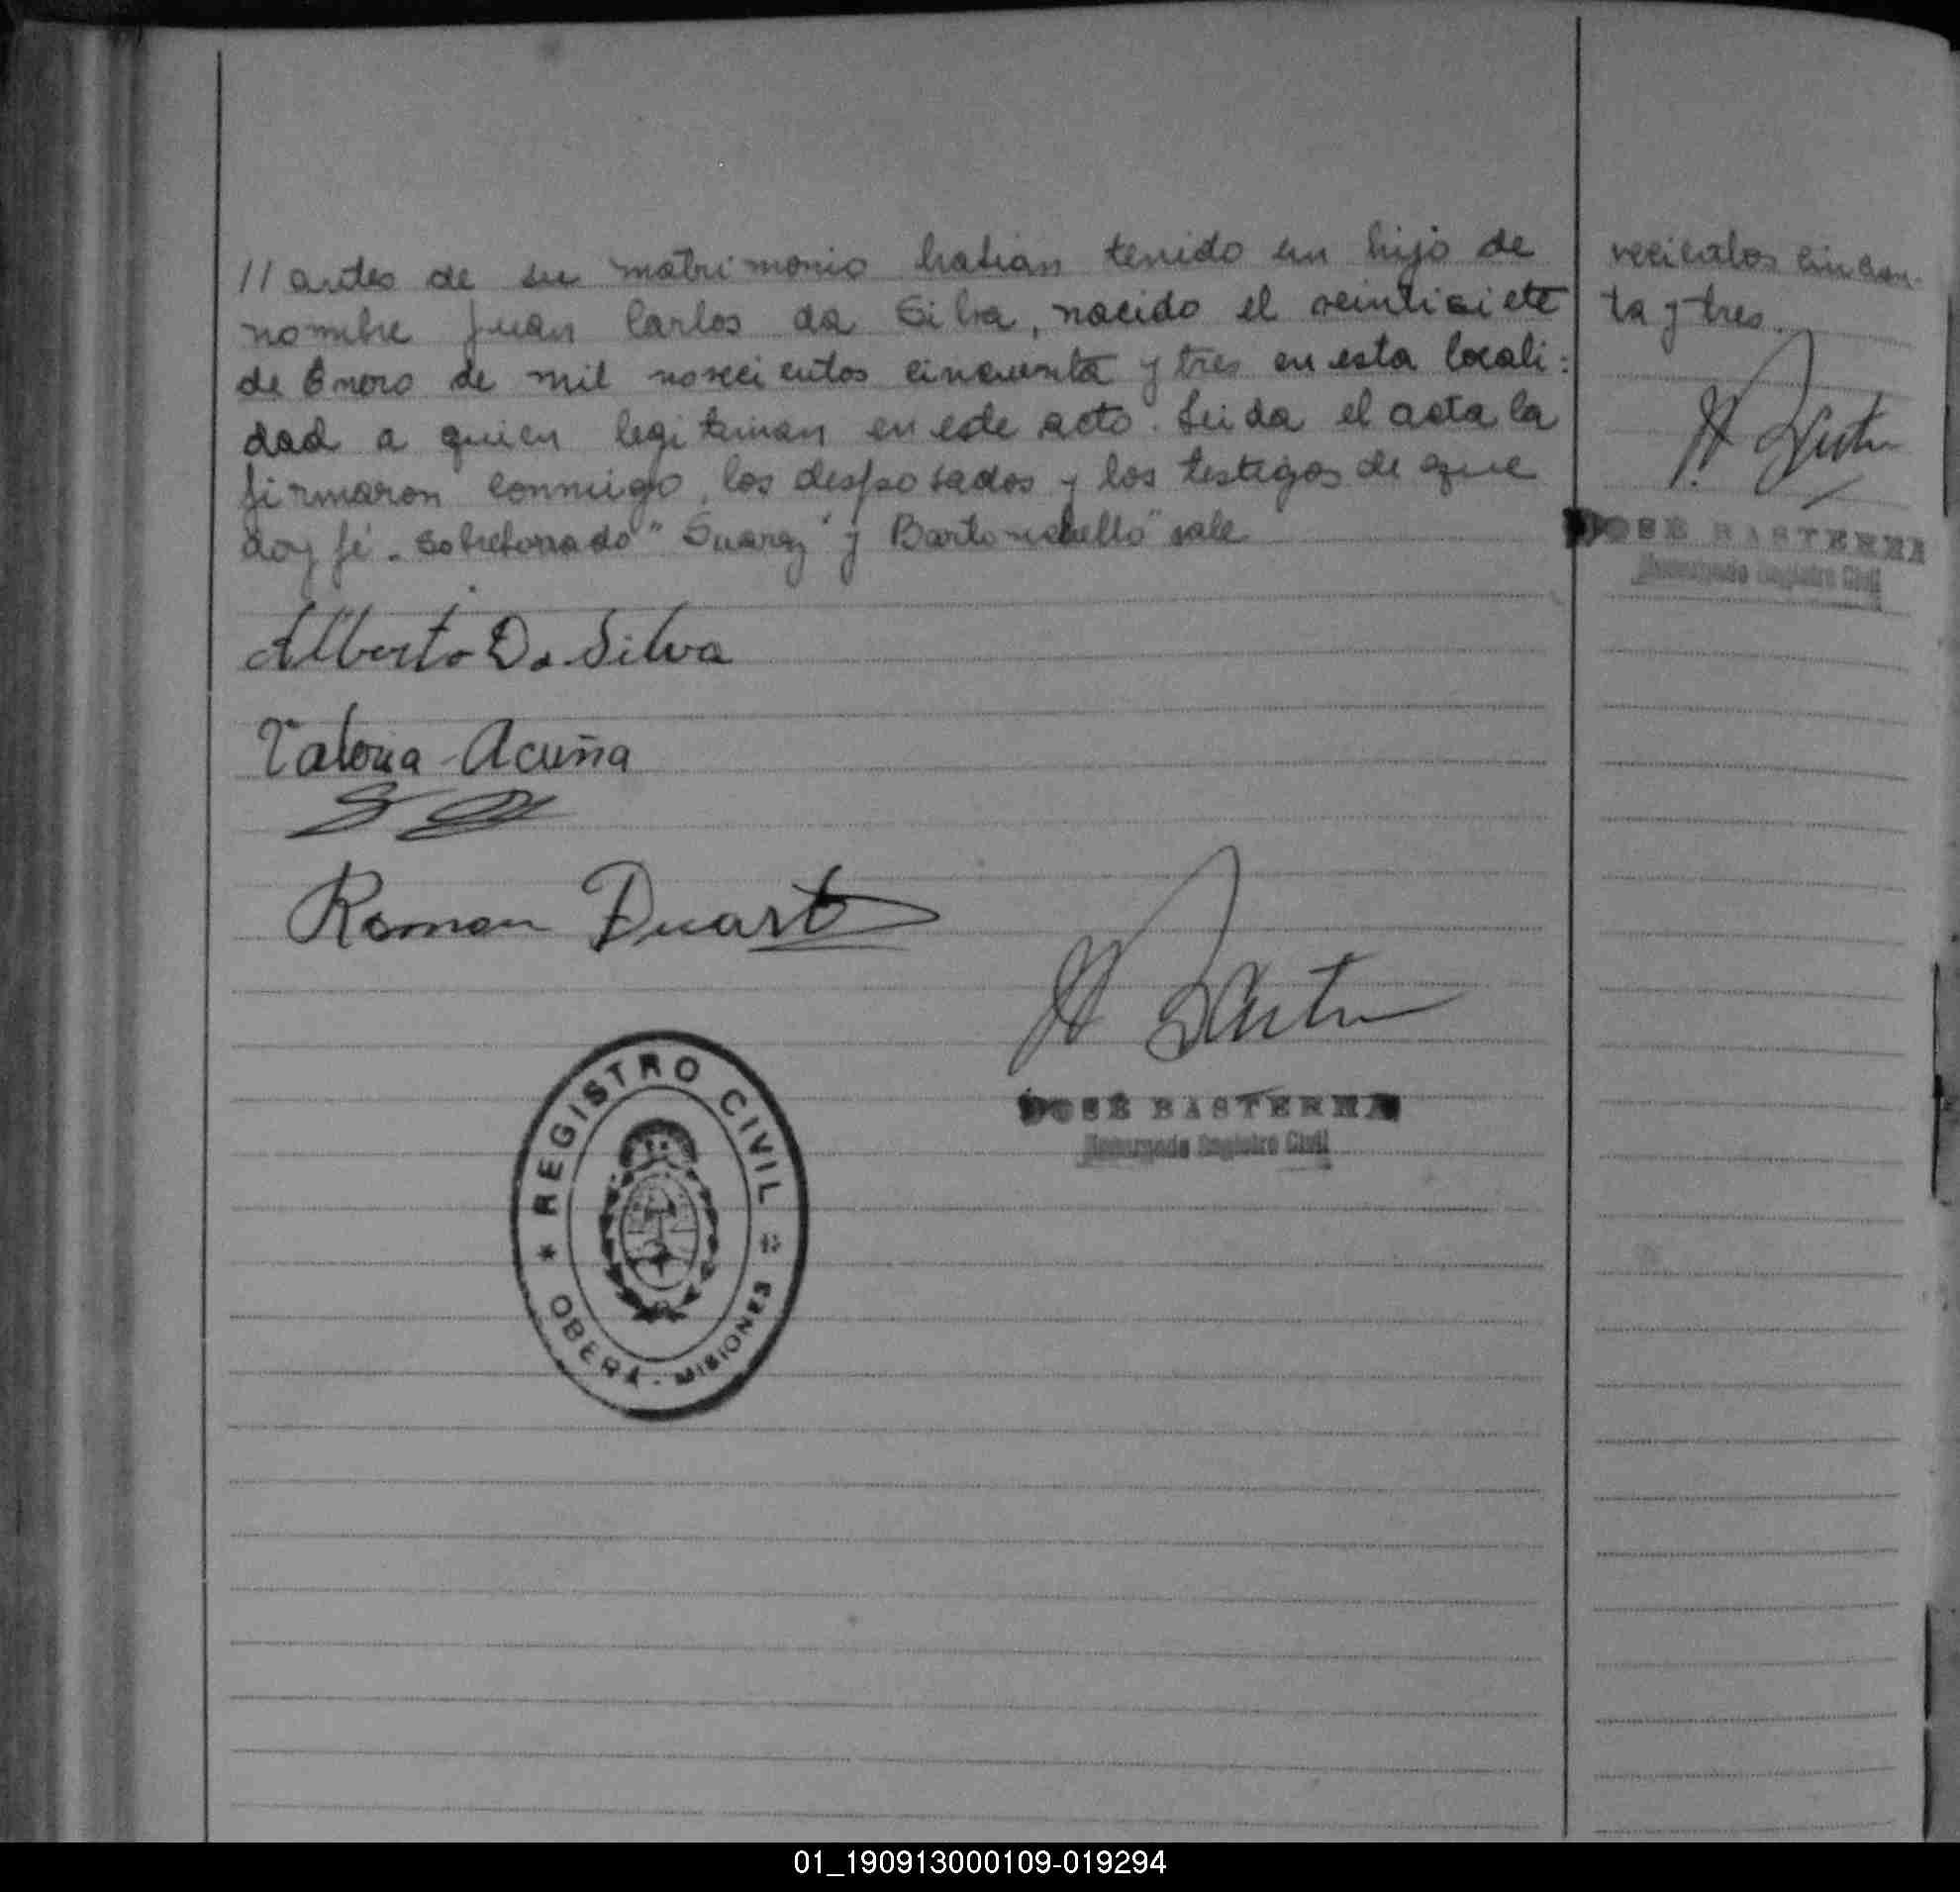 // antes de su matrimonio habian tenido un hijo de
nombre Juan Carlos da Silva, nacido el veintisiete
de Enero de mil novecientos cincuenta y tres en esta locali:
dad a quien legitiman en este acto. Leida el acta la
firmaron conmigo, los desposados y los testigos de que
doy fé. Sobreborrado "Suarez" y Bartonchello" vale
Alberto Da Silva
Valeria Acuña
Roman Duarte
JOSÉ BASTERRA
Encargado Registro Civil
REGISTRO CIVIL
OBERÁ - MISIONES
vecientos cincuen-
ta y tres.
JOSÉ BASTERRA
Encargado Registro Civil
01_190913000109-019294